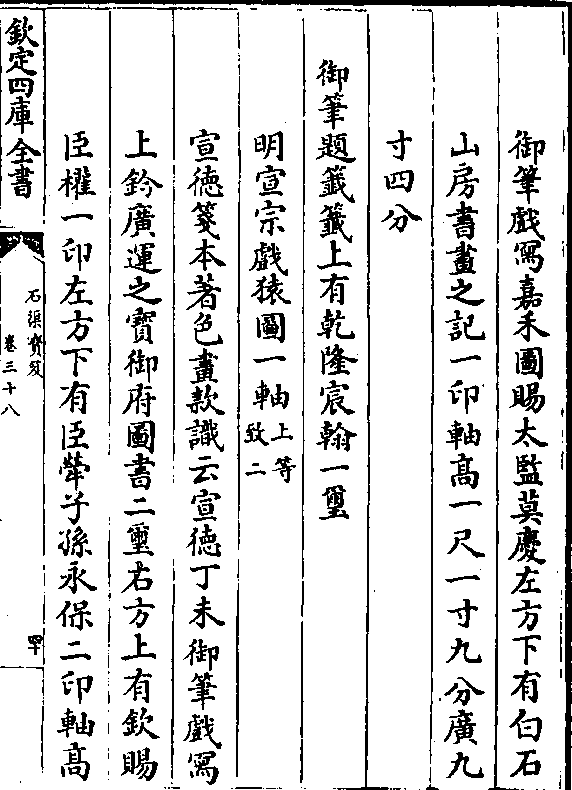 御筆戲寫嘉禾圖賜太監莫慶左方下有白石
山房書畫之記一印軸高一尺一寸九分廣九
寸四分
御筆題籤籤上有乾隆宸翰一璽
明宣宗戲猿圖一軸上等
致二
宣德箋本著色畫款識云宣德丁未御筆戲寫
上鈐廣運之寶御府圖書二璽右方上有欽賜
臣權一印左方下有臣犖子孫永保二印軸高
欽定四庫全書
石渠寳笈
卷三十八